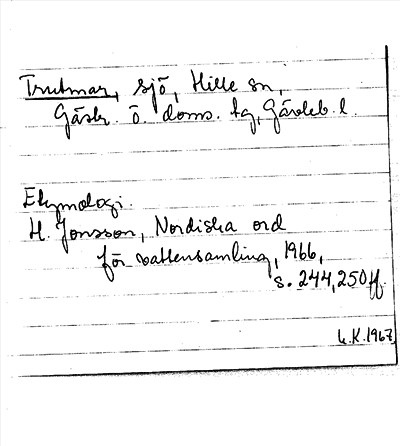 Trutmar, sjö, Hille sn,
Gästr. ö. doms. tg, Gävleb. l.
Etymologi.
H. Jonsson, Nordiska ord
för vattensamling, 1966,
s. 244, 250ff.
L.K. 1967